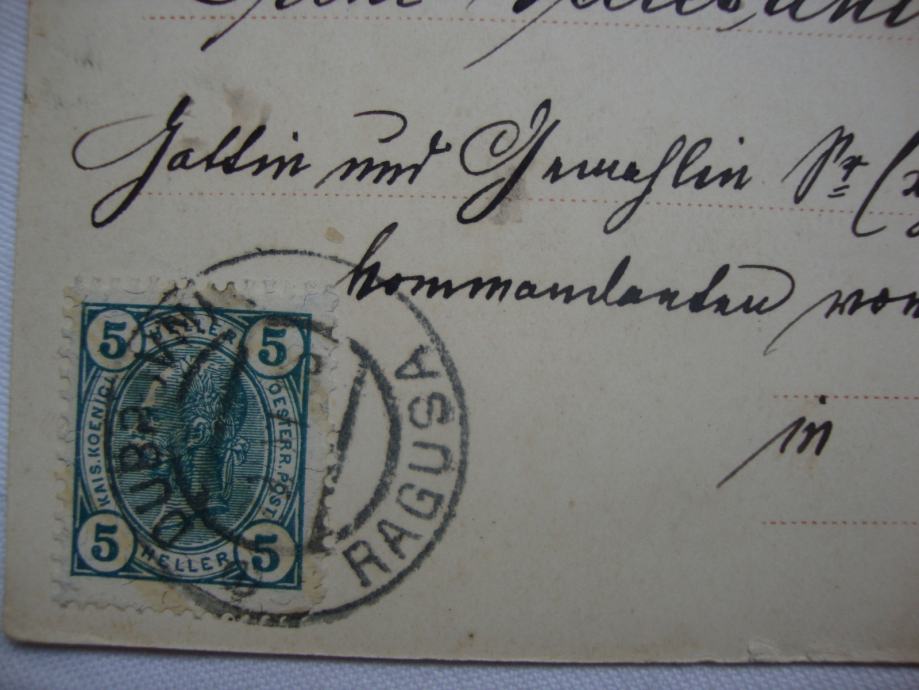 Gattin und Gemahlin Sr
Kommandanten von
in
5 HELLER 5
KAIS. KOENIGL. OESTERR. POST.
5 HELLER 5
DUBROVNIK
RAGUSA